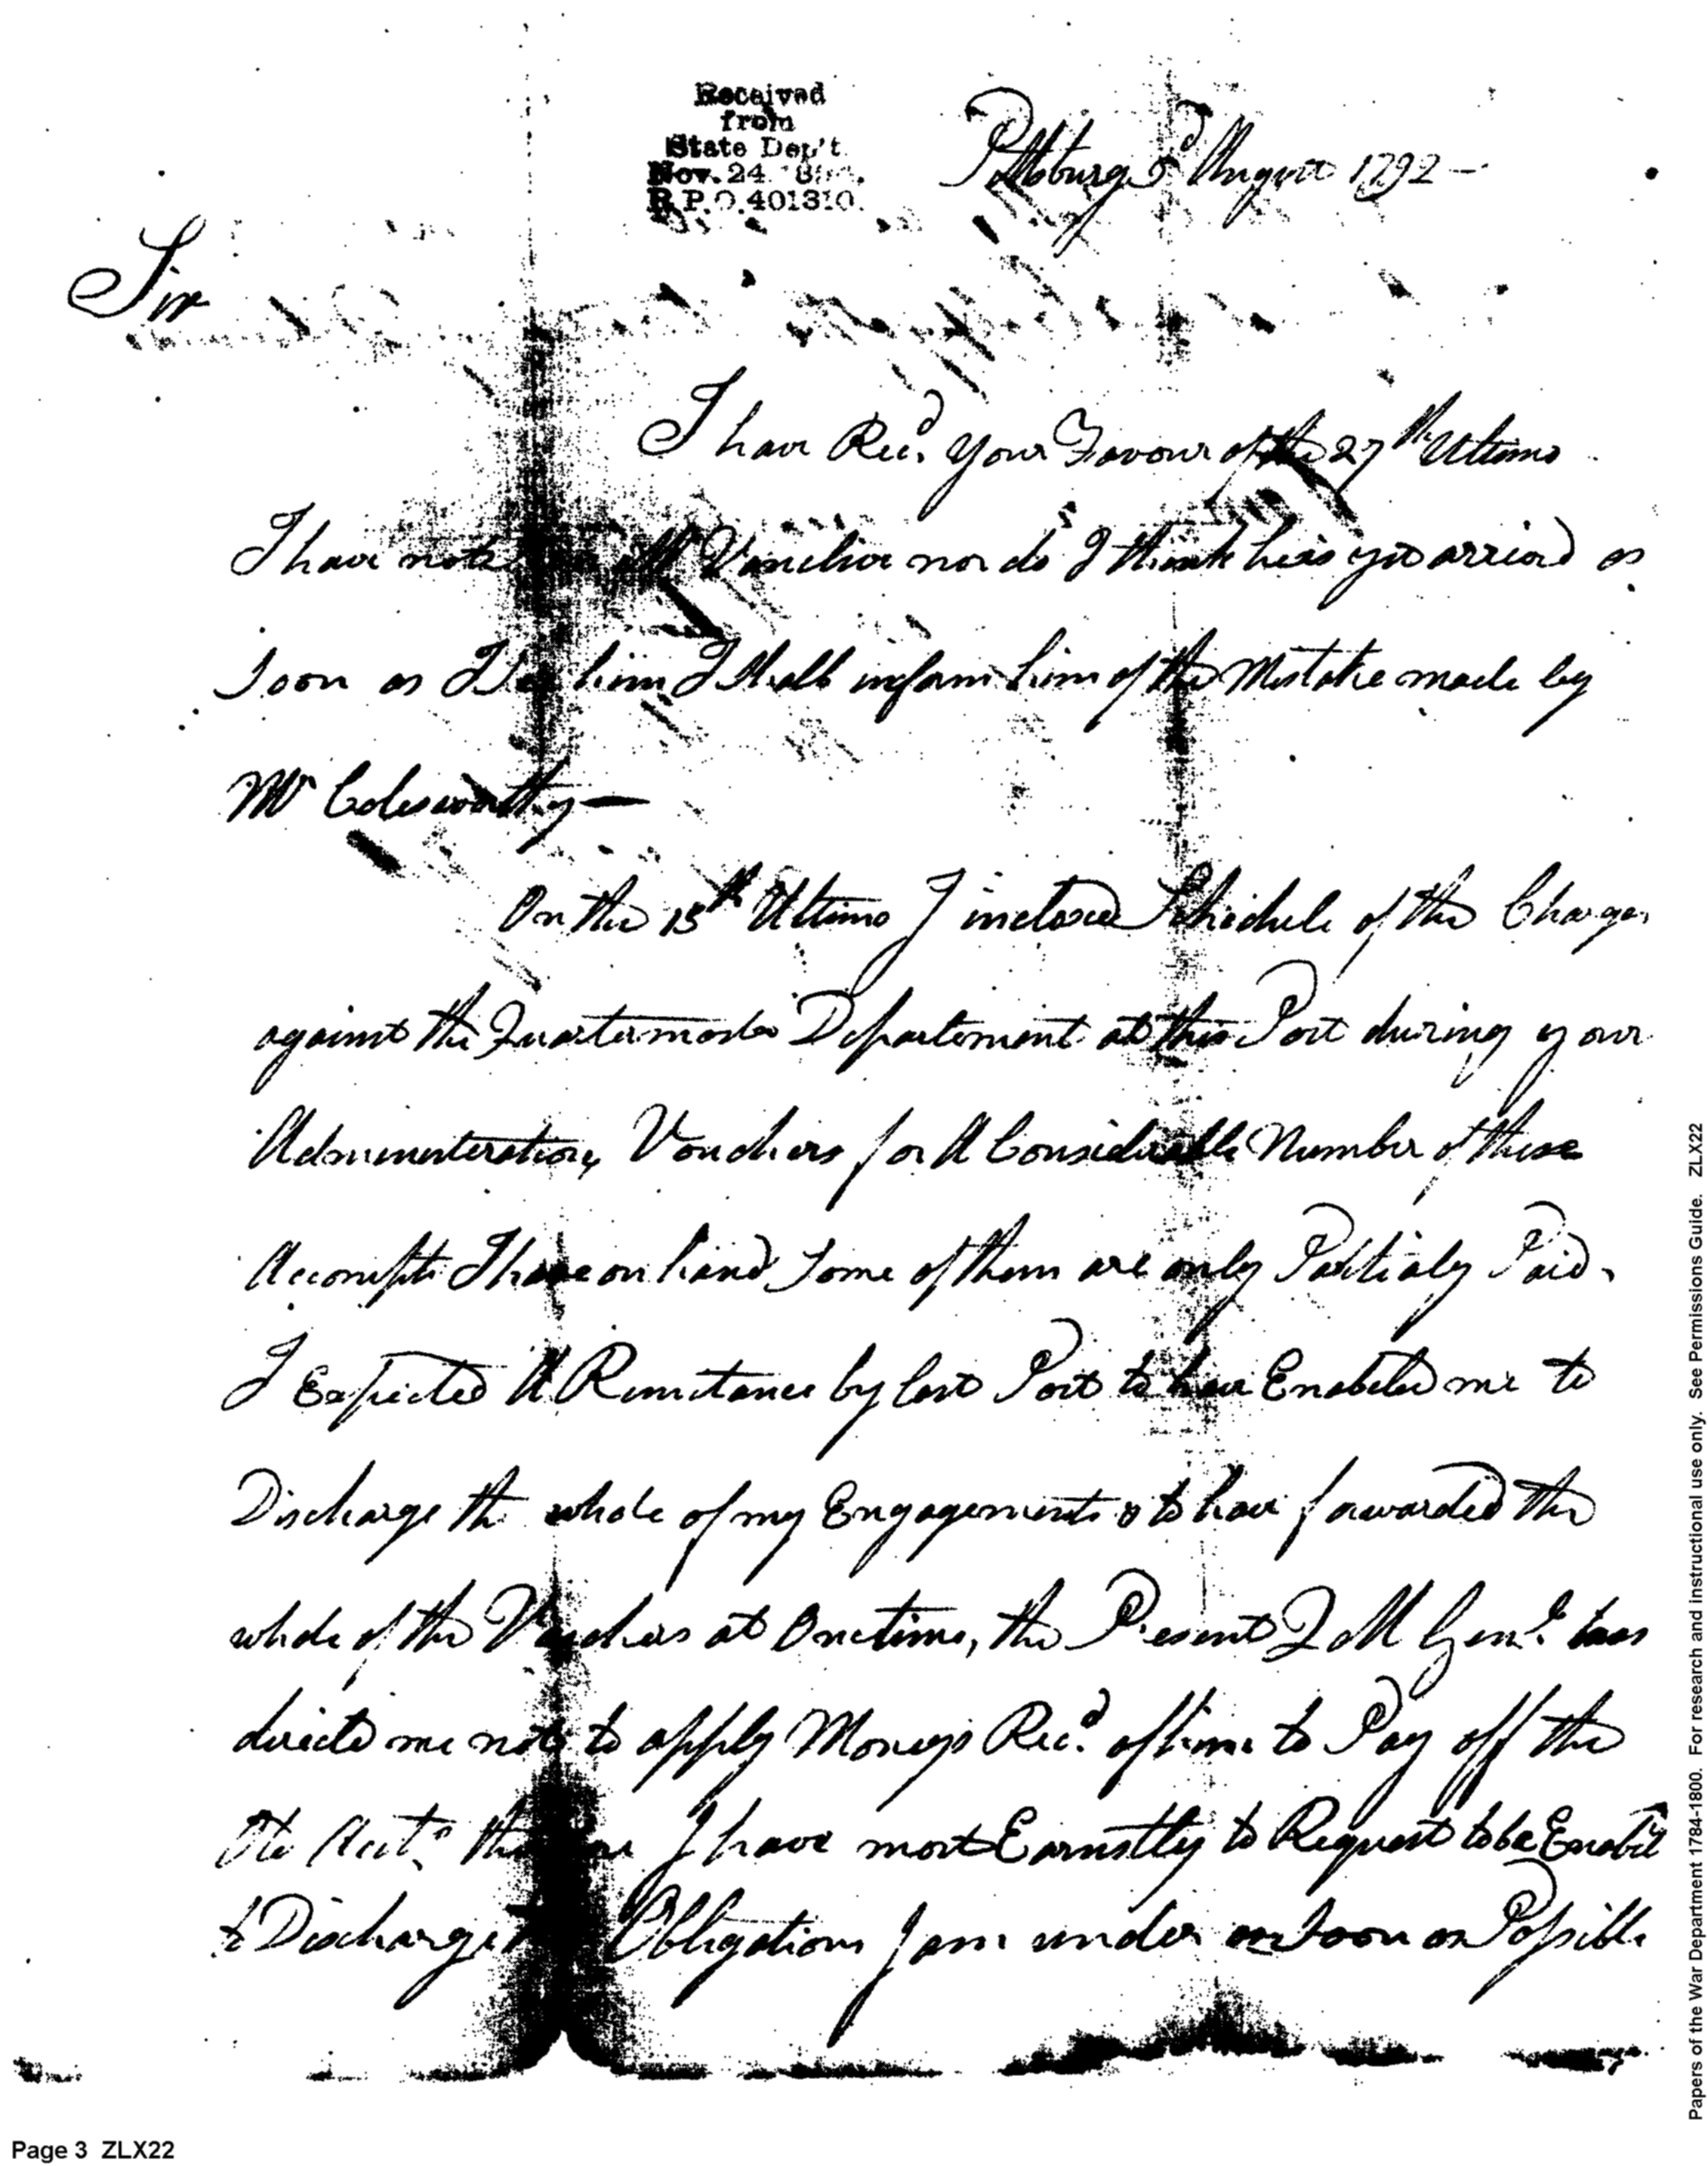 Received
from
State Dep't.
Nov. 24
R.P.O. 401310.
Pittsburg August 1792 —
Sir
I have Rec.d your Favour of the 27th Ultimo
I have not Mr nor do I think he is yet arrived as
soon as I See him I Shall inform him of the Mistake made by
Mr Colesworthy —
On the 15th Ultimo I inclosed Schidule of the Charges
against the Quartermaster Department at this Post during your
Administeration, Vouchers for A Considerable Number of these
Accompts I have on hand Some of them are only Partialy Paid.
I Expected A Remitance by last Post to have Enabeled me to
Discharge the whole of my Engagements & to have forwarded the
whole of the Vouchers at One time, the Present Q M Genl. has
directed me not to apply Moneys Rec.d of him to Pay off the
Old Acct.s therefore I have most Earnistly to Request to be Enabl
to Discharge Obligations I am under as Soon as Possible
Page 3 ZLX22
Papers of the War Department 1784-1800. For research and instructional use only. See Permissions Guide. ZLX22